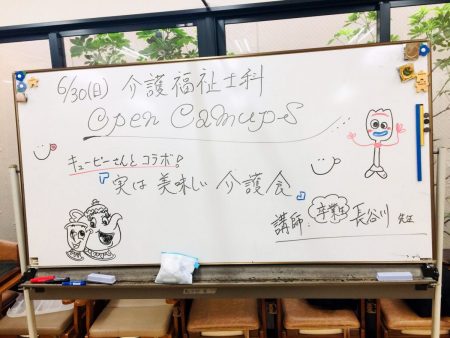 6/30(日) 介護福祉士科
Open Camups
キューピーさんとコラボ!
『実は美味しい 介護食』
講師: 卒業生 長谷川 先生